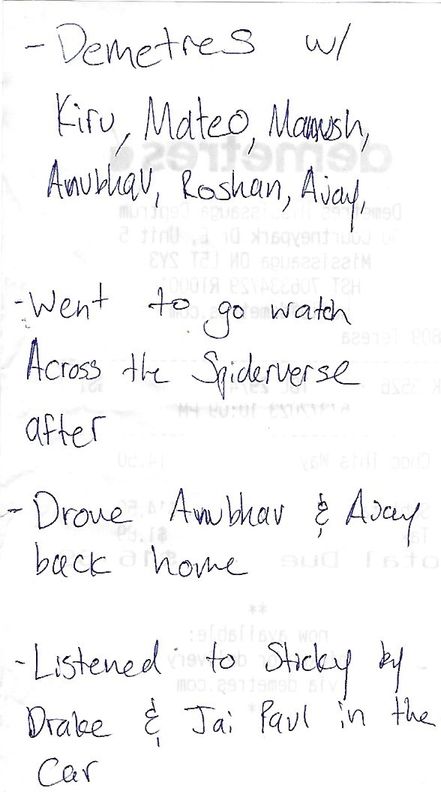 - Demetres w/
Kiru, Mateo, Manush,
Anubhav, Roshan, Ajay,
- Went to go watch
Across the Spiderverse
after
- Drove Anubhav & Ajay
back home
- Listened to Sticky by
Drake & Jai Paul in the
Car